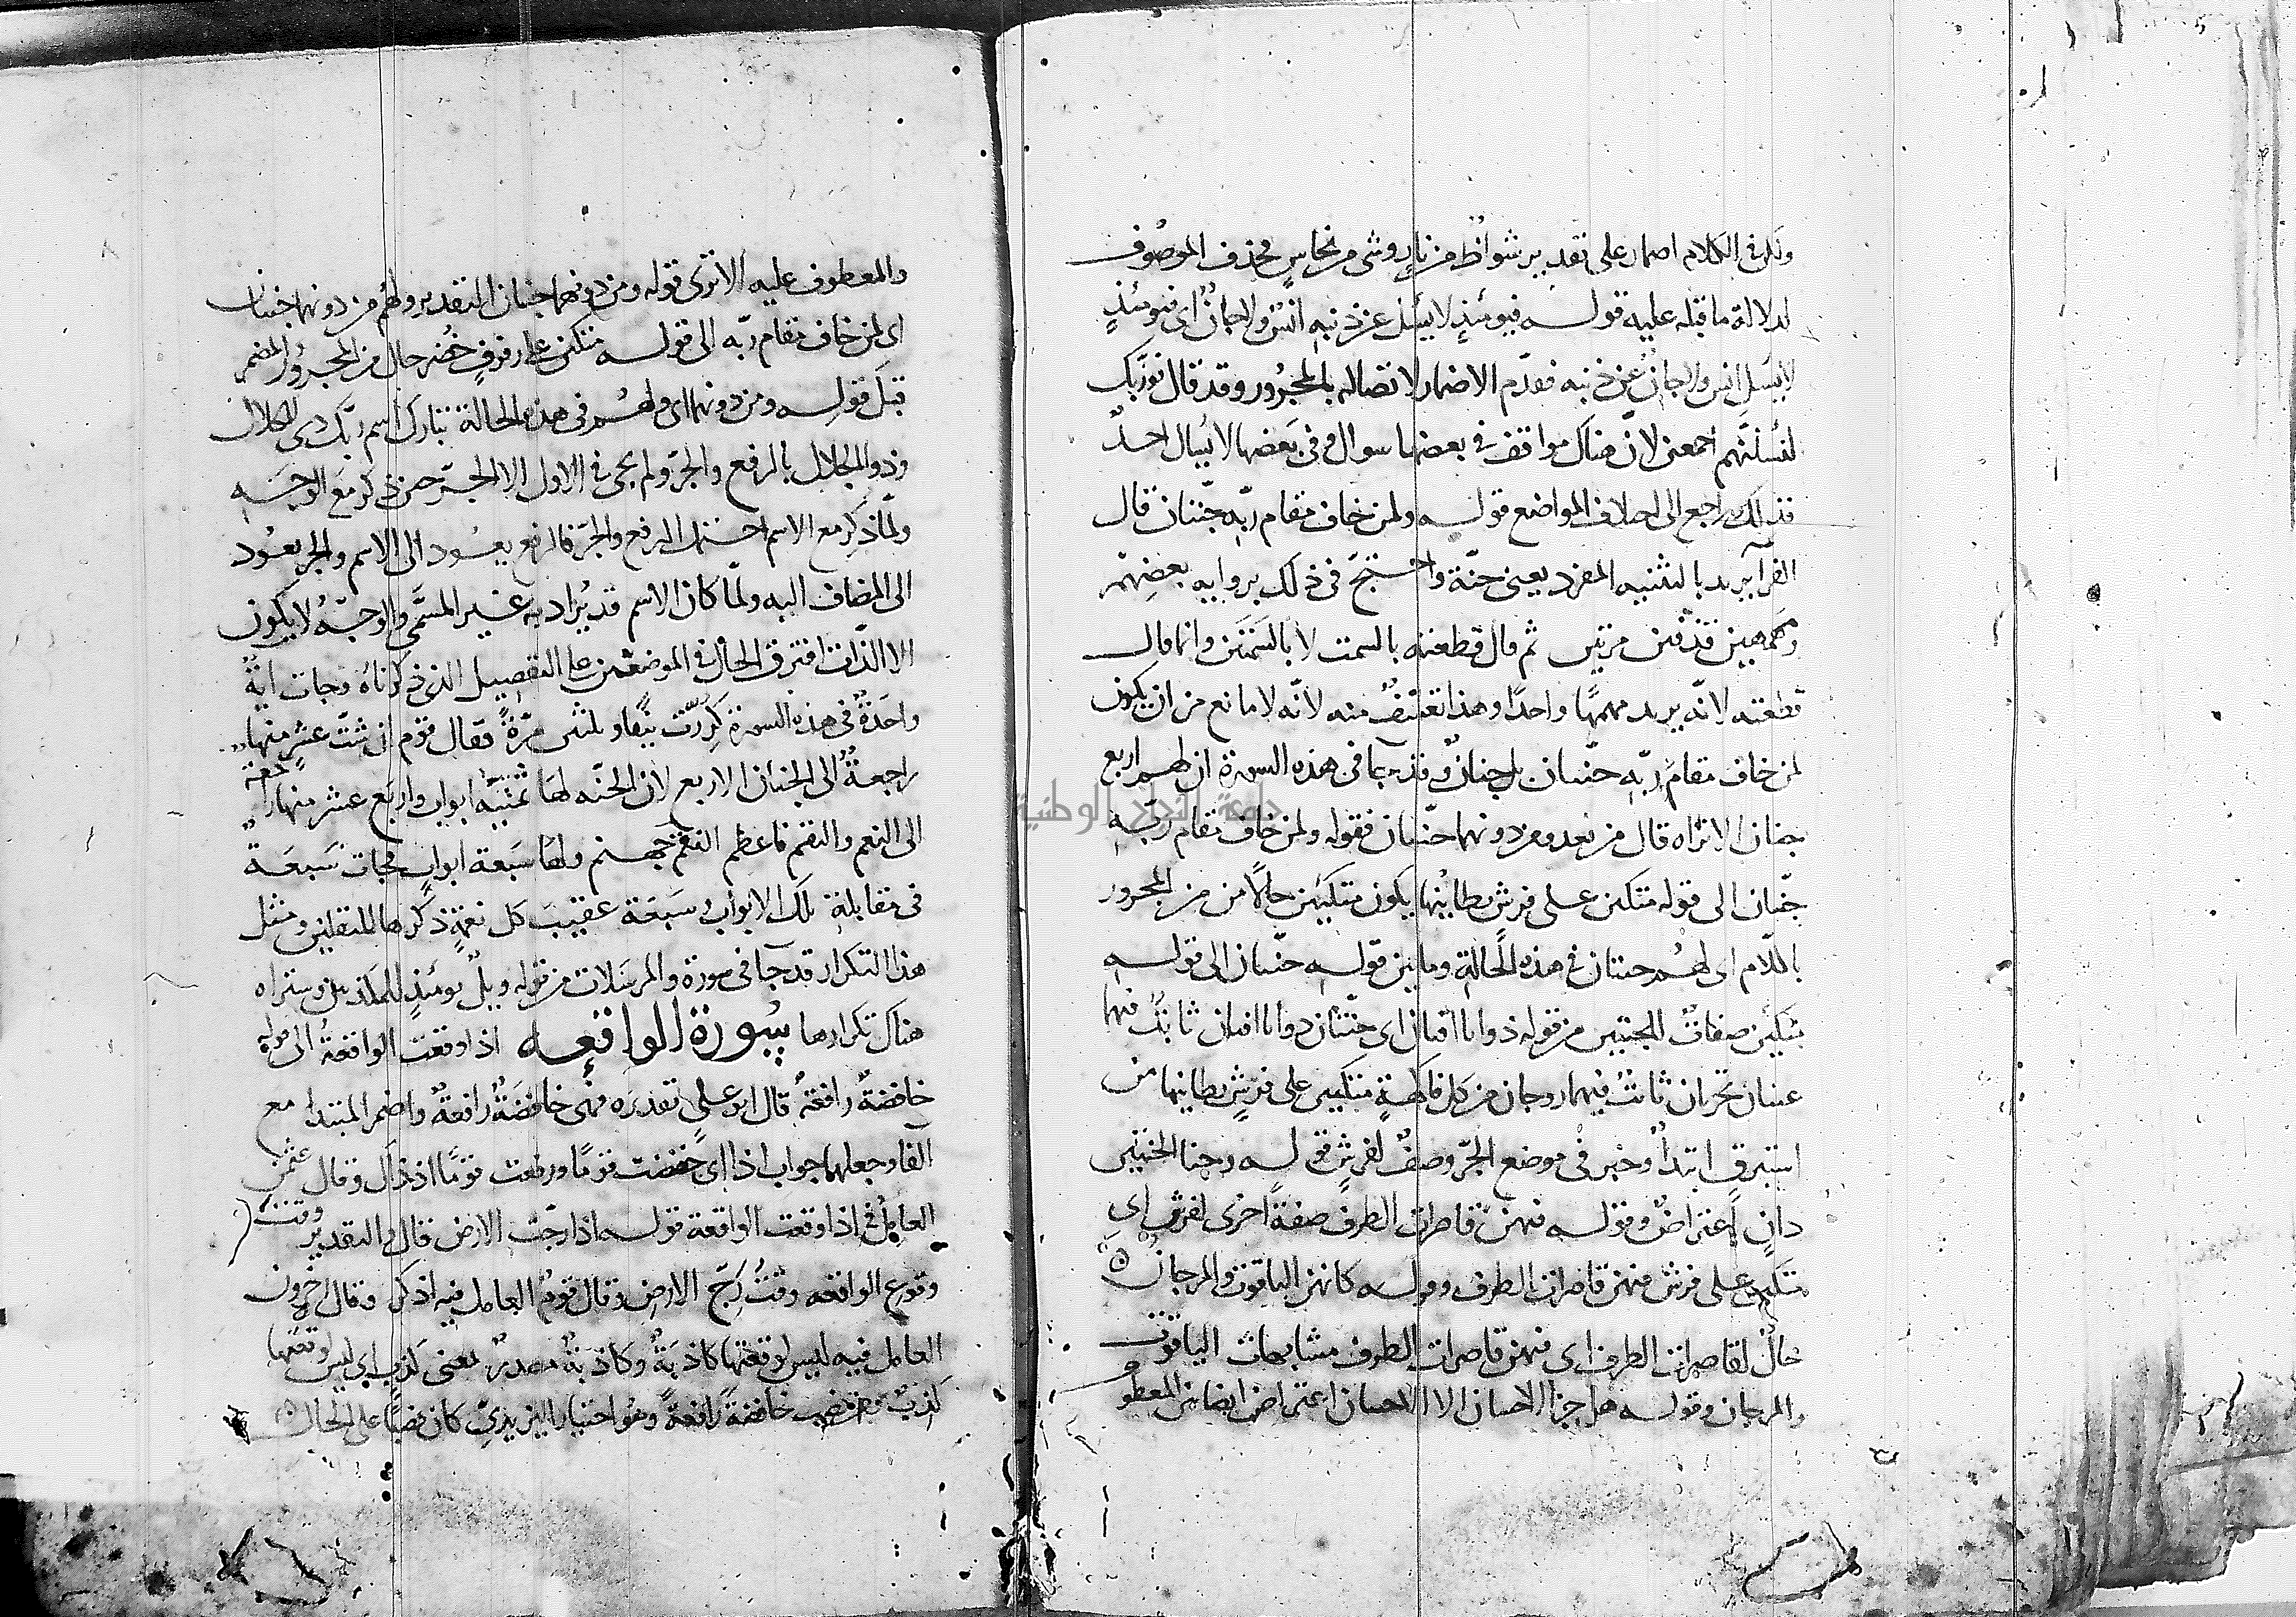 ولكن في الكلام اضمار على تقدير شواظ من نار وشى من نحاس فحذف الموصوف
لدلالة ما قبله عليه قوله فيومئذ لا يسئل عن ذنبه انس ولا جان اى فيومئذ
لا يسئل انس ولا جان عن ذنبه فقدم الاضمار لاتصاله بالمجرور وقد قال فوربك
لنسئلنهم اجمعين لان هناك مواقف في بعضها سوال وفي بعضها لا يسال احد
فذلك راجع الى اختلاف المواضع قوله ولمن خاف مقام ربه جنتان قال
الفرآ يريد بالتثنيه المفرد يعنى جنة واحتج في ذلك برواية بعضهم
ومهمهين قذفين مرتين ثم قال قطعته بالسمت لا بالسمتين وانما قال
قطعته لانه يريد مهمها واحدا وهذا تعسف منه لانه لا مانع من ان يكون
لمن خاف مقام ربه جنتان بل جنان وقد جا في هذه السورة ان لهم اربع
جنان الا تراه قال من بعد ومن دونهما جنتان فقوله ولمن خاف مقام ربه
جنتان الى قوله متكئين على فرش بطاينها يكون متكئين حالا من من المجرور
باللام اى لهم جنتان في هذه الحالة وما بين قوله جنتان الى قوله
متكئين صفات للجنتين من قوله ذواتا افنان اى جنتان ذواتا افنان ثابت فيهما
عينان تجريان ثابت فيهما زوجان من كل فاكهة متكئين على فرش بطاينها من
استبرق ابتدا وخبر في موضع الجر وصف لفرش قوله وجنا الجنتين
دان اعتراض وقوله فيهن قاصرات الطرف صفة اخرى لفرش اى
متكئين على فرش فيهن قاصرات الطرف وقوله كانهن الياقوت والمرجان
حال لقاصرات الطرف اى فيهن قاصرات الطرف مشابهات الياقوت
والمرجان وقوله هل جزا الاحسان الا الاحسان اعتراض ايضا بين المعطوف
والمعطوف عليه الا ترى قوله ومن دونهما جنتان التقدير ولهم من دونهما جنتان
اى لمن خاف مقام ربه الى قوله متكئين على رفرف خضر حال من المجرور المضمر
قبل قوله ومن دونهما اى ولهم في هذه الحالة تبارك اسم ربك ذى الجلال
وذو الجلال بالرفع والجر ولم يجى في الاول الا الجر حين ذكر مع الوجه
ولما ذكر مع الاسم احتمل الرفع والجر فالرفع يعود الى الاسم والجر يعود
الى المضاف اليه ولما كان الاسم قد يراد به غير المسمى والوجه لا يكون
الا الذات افترق الحال في الموضعين على التفصيل الذي ذكرناه وجات اية
واحدة في هذه السورة كررت نيفا وثلثين مرة فقال قوم ان ثمت عشر منها
راجعة الى الجنان الاربع لان الجنه لها ثمنية ابواب واربع عشر منها راجعة
الى النعم والنقم فاعظم النقم جهنم ولها سبعة ابواب فجات سبعة
في مقابلة تلك الابواب وسبعة عقيب كل نعمة ذكرها للثقلين ومثل
هذا التكرار قد جا في سورة والمرسلات من قوله ويل يومئذ للمكذبين وستراه
هناك تكرارها سورة الواقعه اذا وقعت الواقعة الى قوله
خافضة رافعة قال ابو علي تقديره فهى خافضة رافعة واضمر المبتدا مع
الفآ وجعلها جواب اذا اى خفضت قوما ورفعت قوما اذ ذاك وقال عثمن
العامل في اذا وقعت الواقعة قوله اذا رجت الارض قال والتقدير وقت
وقوع الواقعه وقت رج الارض وقال قوم العامل فيه اذكر وقال اخرون
العامل فيه ليس لوقعتها كاذبة وكاذبة مصدر بمعنى كذب اى ليس لوقعتها
كذب ومن نصب خافضة رافعة وهو اختيار اليزيدي كان نصبا على الحال